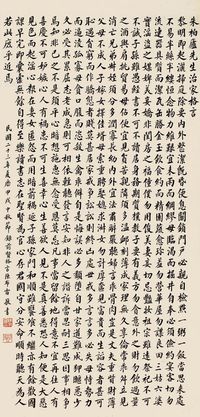 朱柏廬先生治家格言
黎明即起灑掃庭除要內外整潔既昏便息關鎖門戶必親自檢點一粥一飯當思來處
不易半絲半縷恆念物力維艱宜未雨而綢繆毋臨渴而掘井自奉必須儉約宴客切勿
流連器具質而潔瓦缶勝金玉飲食約而精園蔬愈珍饈勿營華屋勿謀良田三姑六婆
實淫盜之媒婢美妾嬌非閨房之福童僕勿用俊美妻妾切忌豔妝祖宗雖遠祭祀不可
不誠子孫雖愚經書不可不讀居身務期質樸教子要有義方勿貪意外之財勿飲過量
之酒與肩挑貿易毋佔便宜見貧苦親鄰須多溫卹刻薄成家理無久享倫常乖舛立見
消亡兄弟叔姪須分多潤寡長幼內外宜法肅辭嚴聽婦言乖骨肉豈是丈夫重資財薄
父母不成人子嫁女擇佳婿毋索重聘娶媳求淑女勿計厚奩見富貴而生諂容者最可
恥遇貧窮而作驕態者賤莫甚居家戒爭訟訟則終凶處世戒多言言多必失毋恃勢力
而凌逼孤寡毋貪口腹而恣殺生禽乖僻自是悔誤必多頹惰自甘家道難成狎暱惡少
久必受其累屈志老成急則可相依輕聽發言安知非人之譖愬當忍耐三思因事相爭
焉知非我之不是須平心暗想施惠無念受恩莫忘凡事當留餘地得意不宜再往人有
喜慶不可生妒忌心人有禍患不可生喜幸心善欲人見不是真善惡恐人知便是大惡
見色而起淫心報在妻女匿怨而用暗箭禍延子孫家門和順雖饔飧不繼亦有餘歡國
課早完即囊橐無餘自得至樂讀書志在聖賢為官心存君國守分安命順時聽天為人
若此庶乎近焉
民國二十三年夏曆甲戌中秋節錄前賢格言